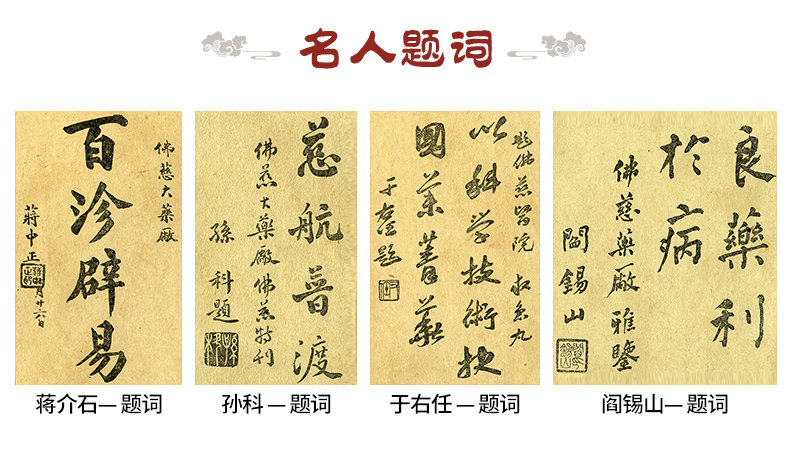 名人题词
佛慈大藥廠
百沴辟易
蔣中正
月廿六日
慈航普渡
佛慈大藥廠佛慈特刊
孫科題
題佛慈醫院
以科學技術抉
國菁華
于右任題
良藥利
於病
佛慈藥廠雅鑒
閻錫山
蒋介石— 题词
孙科 — 题词
于右任 — 题词
阎锡山— 题词